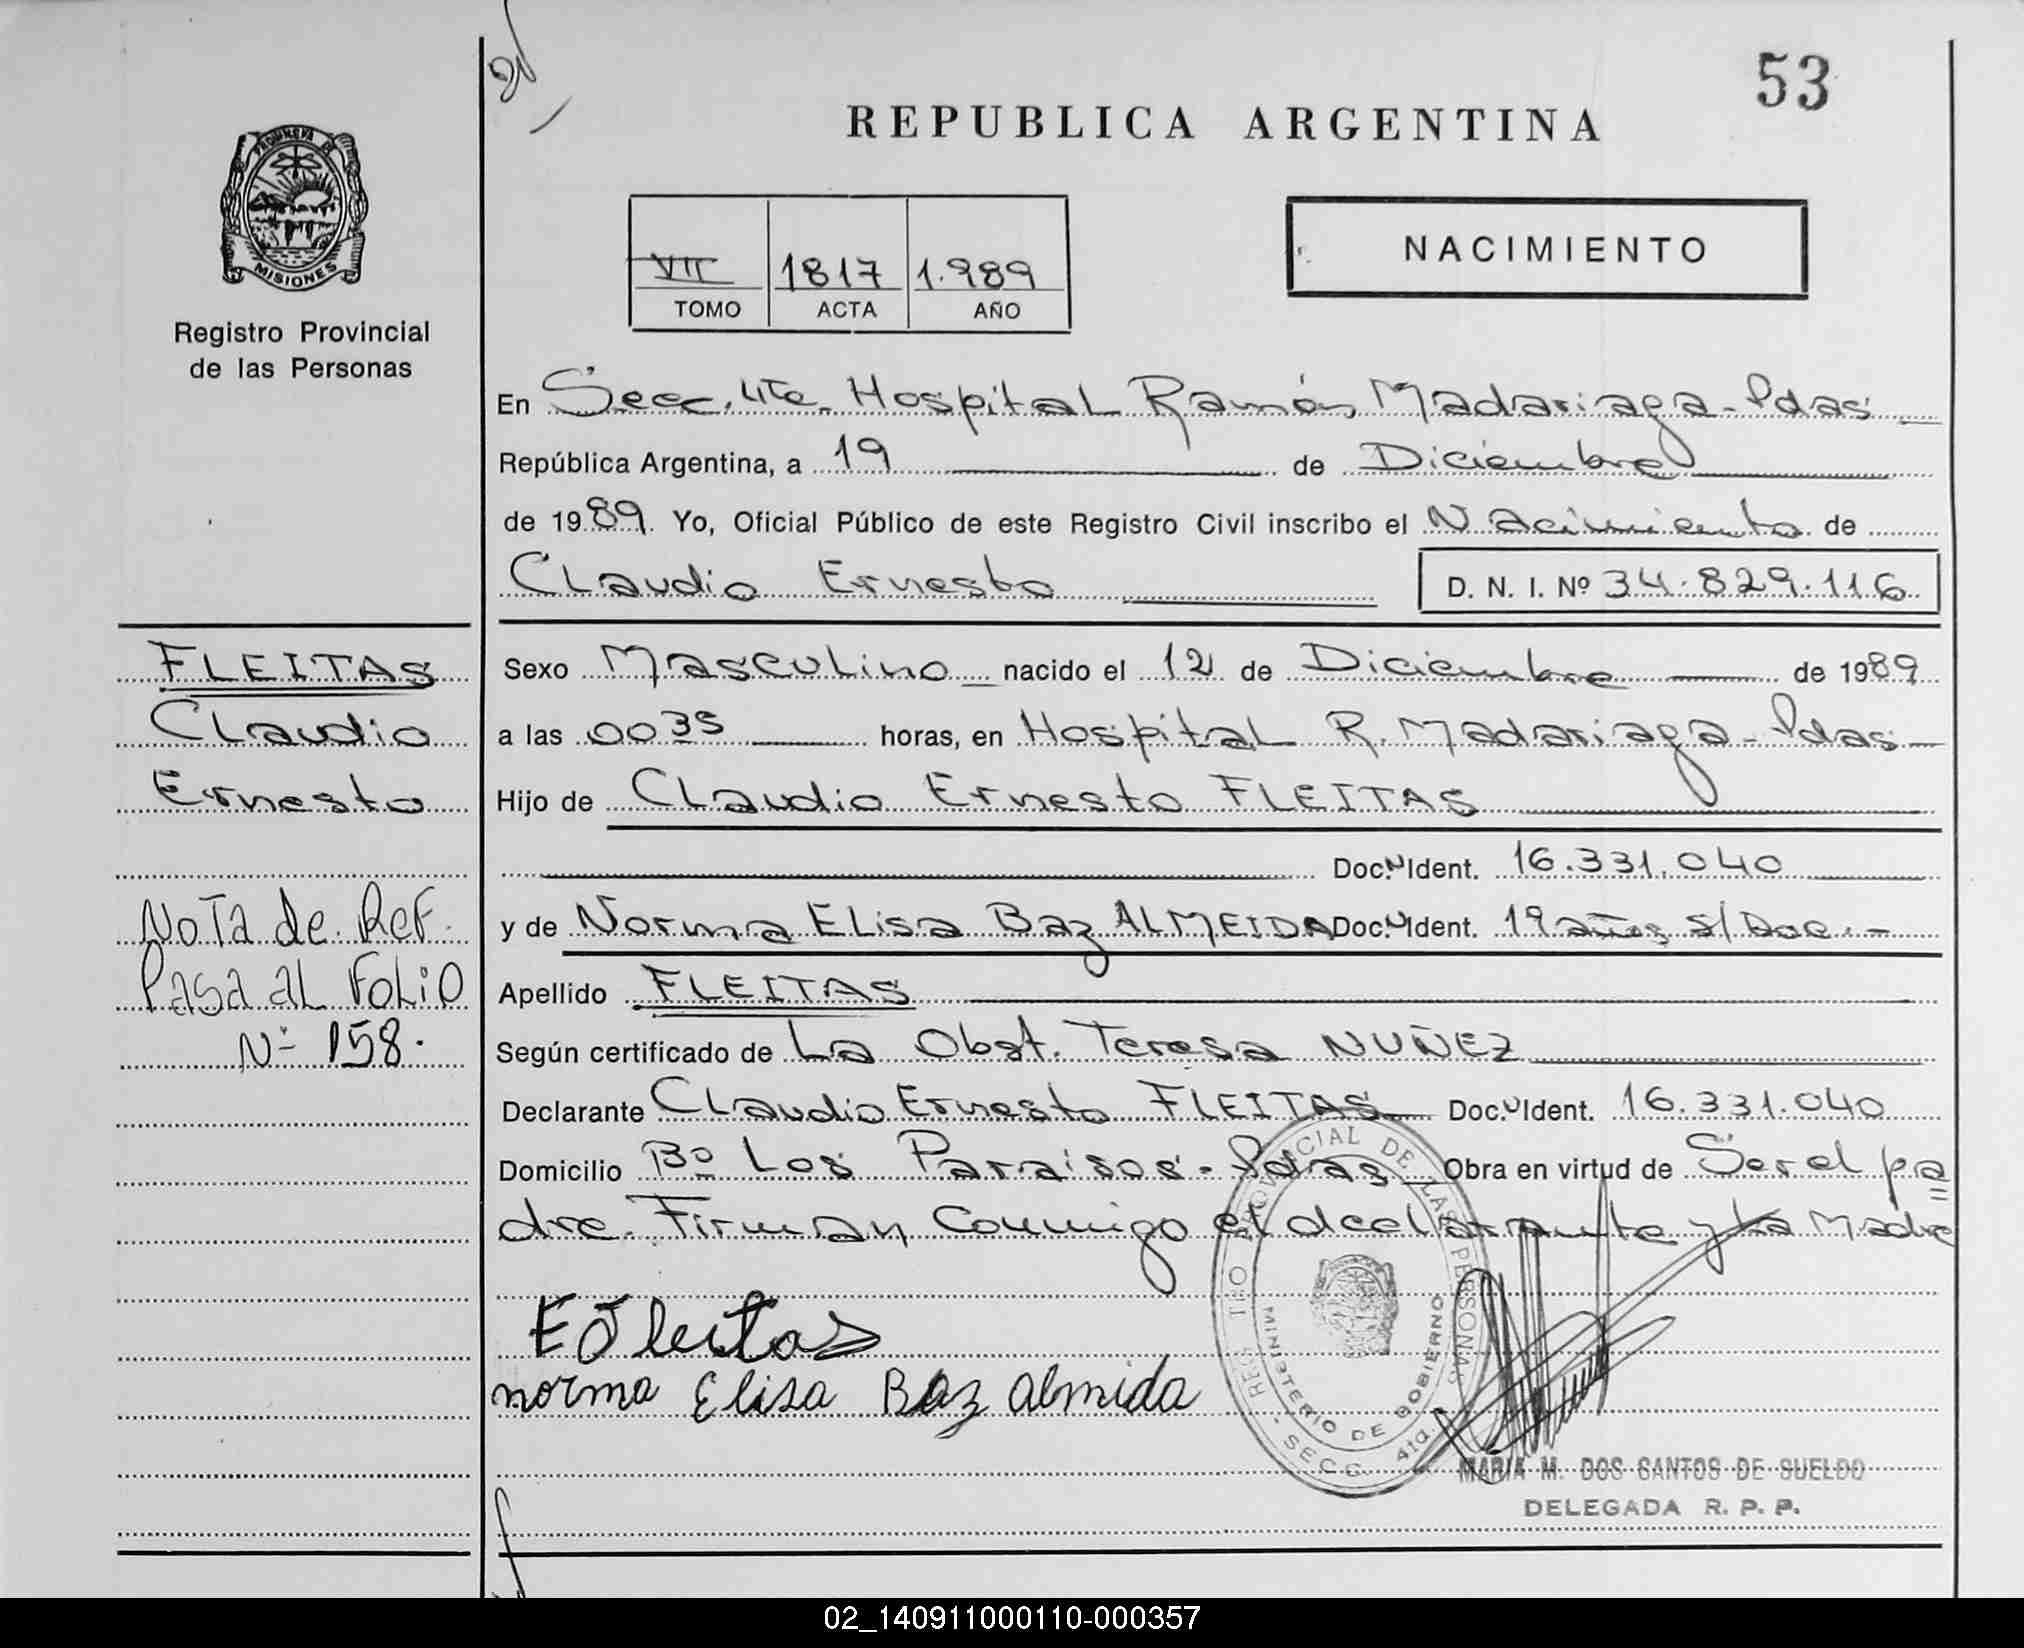 53
REPUBLICA ARGENTINA
PROVINCIA DE
MISIONES
Registro Provincial
de las Personas
VII 1817 1.989
TOMO ACTA AÑO
NACIMIENTO
En Secc. 4ta. Hospital Ramón Madariaga - Pdas
República Argentina, a 19 de Diciembre
de 1989. Yo, Oficial Público de este Registro Civil inscribo el Nacimiento de
Claudio Ernesto D. N. I. Nº 34.829.116
FLEITAS
Claudio
Ernesto
Nota de Ref.
Pasa al Folio
Nº 158.
Sexo Masculino nacido el 12 de Diciembre de 1989
a las 00 35 horas, en Hospital R. Madariaga - Pdas -
Hijo de Claudio Ernesto FLEITAS
Doc. Ident. 16.331.040
y de Norma Elisa Baz ALMEIDA Doc. Ident. 19 años s/Doc. -
Apellido FLEITAS
Según certificado de La Obst. Teresa NUÑEZ
Declarante Claudio Ernesto FLEITAS Doc. Ident. 16.331.040
Domicilio Bº Los Paraisos - Pdas Obra en virtud de Ser el pa
dre. Firman Conmigo el declarante y la Madre
E Fleitas
norma Elisa Baz almida
REGISTRO PROVINCIAL DE LAS PERSONAS
MINISTERIO DE GOBIERNO
- SECC. 4ta.
MARIA M. DOS SANTOS DE SUELDO
DELEGADA R. P. P.
02_140911000110-000357